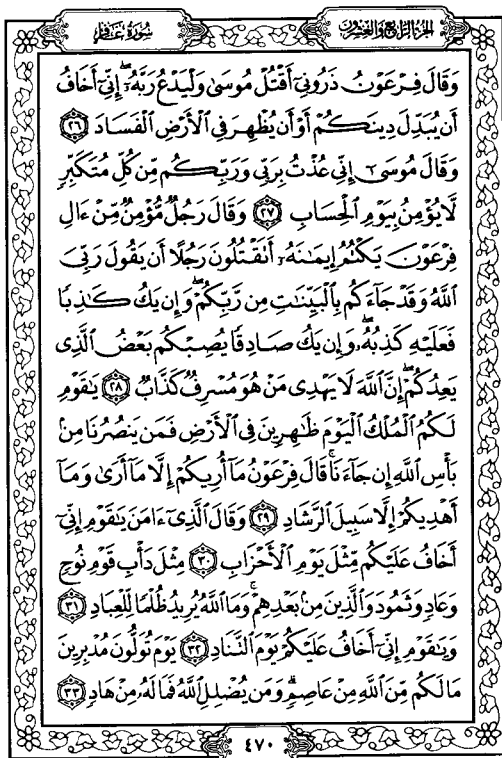 الجزء الرابع والعشرون
سورة غافر
وَقَالَ فِرْعَوْنُ ذَرُونِيٓ أَقْتُلْ مُوسَىٰ وَلْيَدْعُ رَبَّهُۥٓ إِنِّيٓ أَخَافُ
أَن يُبَدِّلَ دِينَكُمْ أَوْ أَن يُظْهِرَ فِي ٱلْأَرْضِ ٱلْفَسَادَ ٢٦
وَقَالَ مُوسَىٰٓ إِنِّي عُذْتُ بِرَبِّي وَرَبِّكُم مِّن كُلِّ مُتَكَبِّرٍ
لَّا يُؤْمِنُ بِيَوْمِ ٱلْحِسَابِ ٢٧ وَقَالَ رَجُلٌ مُّؤْمِنٌ مِّنْ ءَالِ
فِرْعَوْنَ يَكْتُمُ إِيمَٰنَهُۥٓ أَتَقْتُلُونَ رَجُلًا أَن يَقُولَ رَبِّيَ
ٱللَّهُ وَقَدْ جَآءَكُم بِٱلْبَيِّنَٰتِ مِن رَّبِّكُمْ ۖ وَإِن يَكُ كَٰذِبًا
فَعَلَيْهِ كَذِبُهُۥ ۖ وَإِن يَكُ صَادِقًا يُصِبْكُم بَعْضُ ٱلَّذِي
يَعِدُكُمْ ۖ إِنَّ ٱللَّهَ لَا يَهْدِي مَنْ هُوَ مُسْرِفٌ كَذَّابٌ ٢٨ يَٰقَوْمِ
لَكُمُ ٱلْمُلْكُ ٱلْيَوْمَ ظَٰهِرِينَ فِي ٱلْأَرْضِ فَمَن يَنصُرُنَا مِنۢ
بَأْسِ ٱللَّهِ إِن جَآءَنَا ۚ قَالَ فِرْعَوْنُ مَآ أُرِيكُمْ إِلَّا مَآ أَرَىٰ وَمَآ
أَهْدِيكُمْ إِلَّا سَبِيلَ ٱلرَّشَادِ ٢٩ وَقَالَ ٱلَّذِيٓ ءَامَنَ يَٰقَوْمِ إِنِّيٓ
أَخَافُ عَلَيْكُم مِّثْلَ يَوْمِ ٱلْأَحْزَابِ ٣٠ مِثْلَ دَأْبِ قَوْمِ نُوحٍ
وَعَادٍ وَثَمُودَ وَٱلَّذِينَ مِنۢ بَعْدِهِمْ ۚ وَمَا ٱللَّهُ يُرِيدُ ظُلْمًا لِّلْعِبَادِ ٣١
وَيَٰقَوْمِ إِنِّيٓ أَخَافُ عَلَيْكُمْ يَوْمَ ٱلتَّنَادِ ٣٢ يَوْمَ تُوَلُّونَ مُدْبِرِينَ
مَا لَكُم مِّنَ ٱللَّهِ مِنْ عَاصِمٍ ۗ وَمَن يُضْلِلِ ٱللَّهُ فَمَا لَهُۥ مِنْ هَادٍ ٣٣
٤٧٠